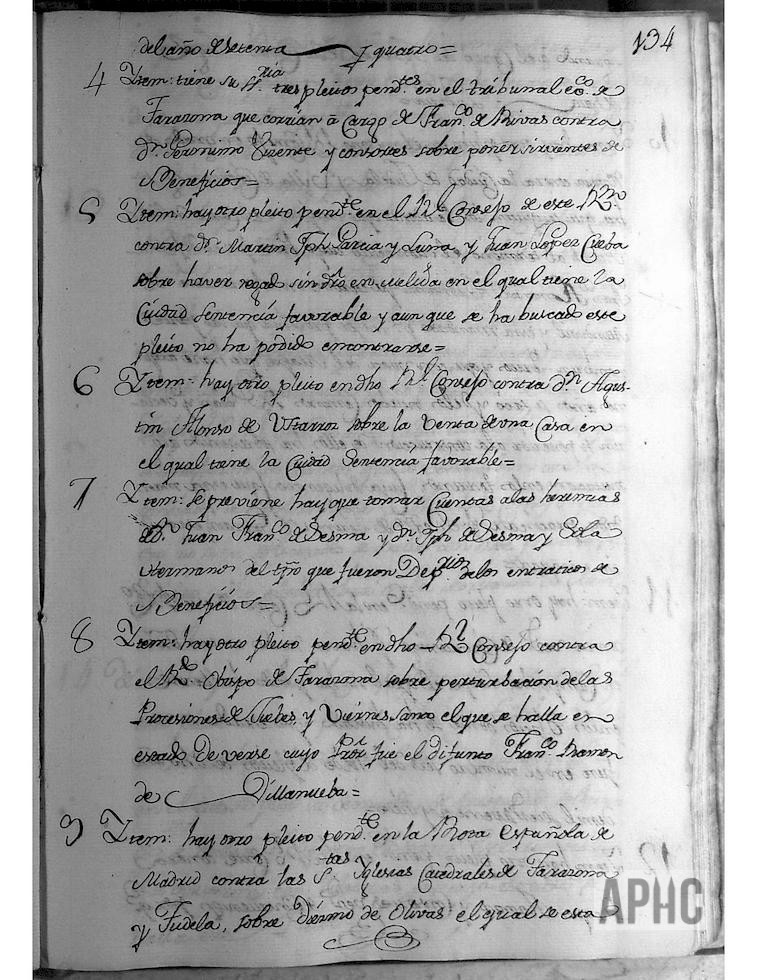 134
del año de setenta y quatro=
4 Ytem: tiene su Sria. tres pleitos pendtes. en el tribunal ecco. de
Tarazona que corrian â Cargo de Franco. de Rivas contra
Dn. Geronimo Vizente y consortes sobre poner sirvientes de
Beneficios=
5 Ytem: hay otro pleito pendte. en el Rl. Consejo de este Rno.
contra dn. Martin Jph Garcia y Luna y Juan Lopez Cueba
sobre haver regado sin dro en en el qual tiene la
Ciudad Sentencia favorable y aun que se ha buscado este
pleito no ha podido encontrarse=
6 Ytem: hay otro pleito en dho Rl. Consejo contra dn. Agus-
tin Alonso de sobre la venta de vna Casa en
el qual tiene la Ciudad Sentencia favorable=
7 Ytem: se previene hay que tomar Cuentas a las herencias
de Dn. Juan Franco. de Lesma y dn. Jph de Lesma y
Hermanos del que fueron rios de los de
Beneficios=
8 Ytem: hay otro pleito pendte. en dho Rl. Consejo contra
el Rdo. Obispo de Tarazona sobre perturbacion de las
Procesiones de Juebes, y Viernes Santo el que se halla en
estado de verse cuyo Pror. fue el difunto Franco. Ramon
de Villanueba=
9 Ytem: hay otro pleito pendte. en la Rota Española de
Madrid contra las Stas. Yglesias Catedrales de Tarazona
y Tudela, sobre diezmo de Olivas el qual se esta
APHC